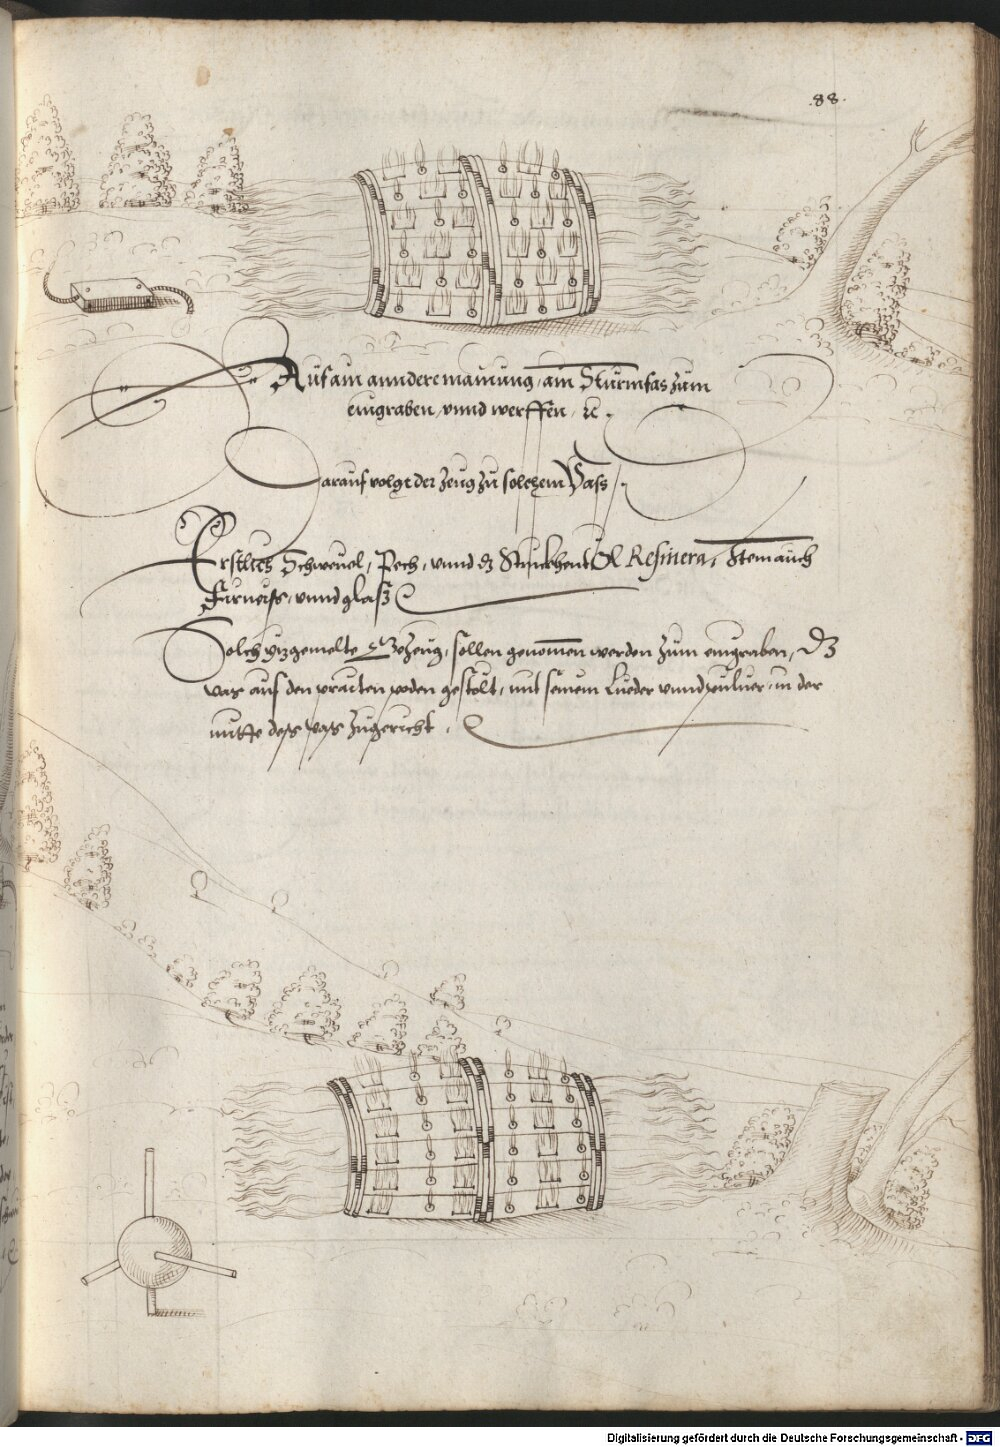 .88.
Auf ain anndere mainung, ain Sturmfas zum
eingraben, vnnd werffen, etc.
Darauf volgt der zeug zu solchem Vass.
Erstlich Schweuel, Pech, vnnd dz Stinckhent Öl Resinera, Item auch
Fürneiss, vnnd glass
Solch yzgemelte Gezeug, sollen genomen werden zum eingraben, Dz
vas auf den praiten poden gestölt, mit seinem Lueder vnnd puluer, in der
mitte dess vass zugericht.
Digitalisierung gefördert durch die Deutsche Forschungsgemeinschaft - DFG